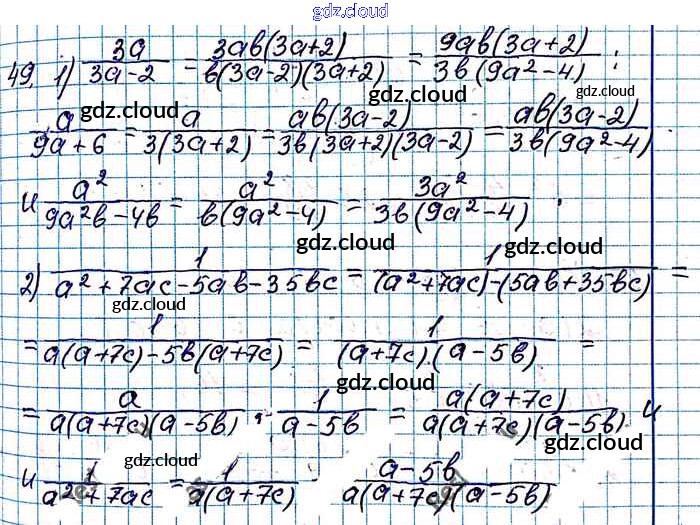 gdz.cloud
49. 1) 3a/(3a-2) = 3ab(3a+2)/(b(3a-2)(3a+2)) = 9ab(3a+2)/(3b(9a²-4)) ;
gdz.cloud gdz.cloud
a/(9a+6) = a/(3(3a+2)) = ab(3a-2)/(3b(3a+2)(3a-2)) = ab(3a-2)/(3b(9a²-4))
gdz.cloud gdz.cloud
и a²/(9a²b-4b) = a²/(b(9a²-4)) = 3a²/(3b(9a²-4)) .
gdz.cloud
2) 1/(a²+7ac-5ab-35bc) = 1/((a²+7ac)-(5ab+35bc)) =
gdz.cloud gdz.cloud
= 1/(a(a+7c)-5b(a+7c)) = 1/((a+7c)(a-5b)) =
gdz.cloud gdz.cloud
= a/(a(a+7c)(a-5b)) ; 1/(a-5b) = a(a+7c)/(a(a+7c)(a-5b)) и
gdz.cloud gdz.cloud
и 1/(a²+7ac) = 1/(a(a+7c)) = (a-5b)/(a(a+7c)(a-5b))